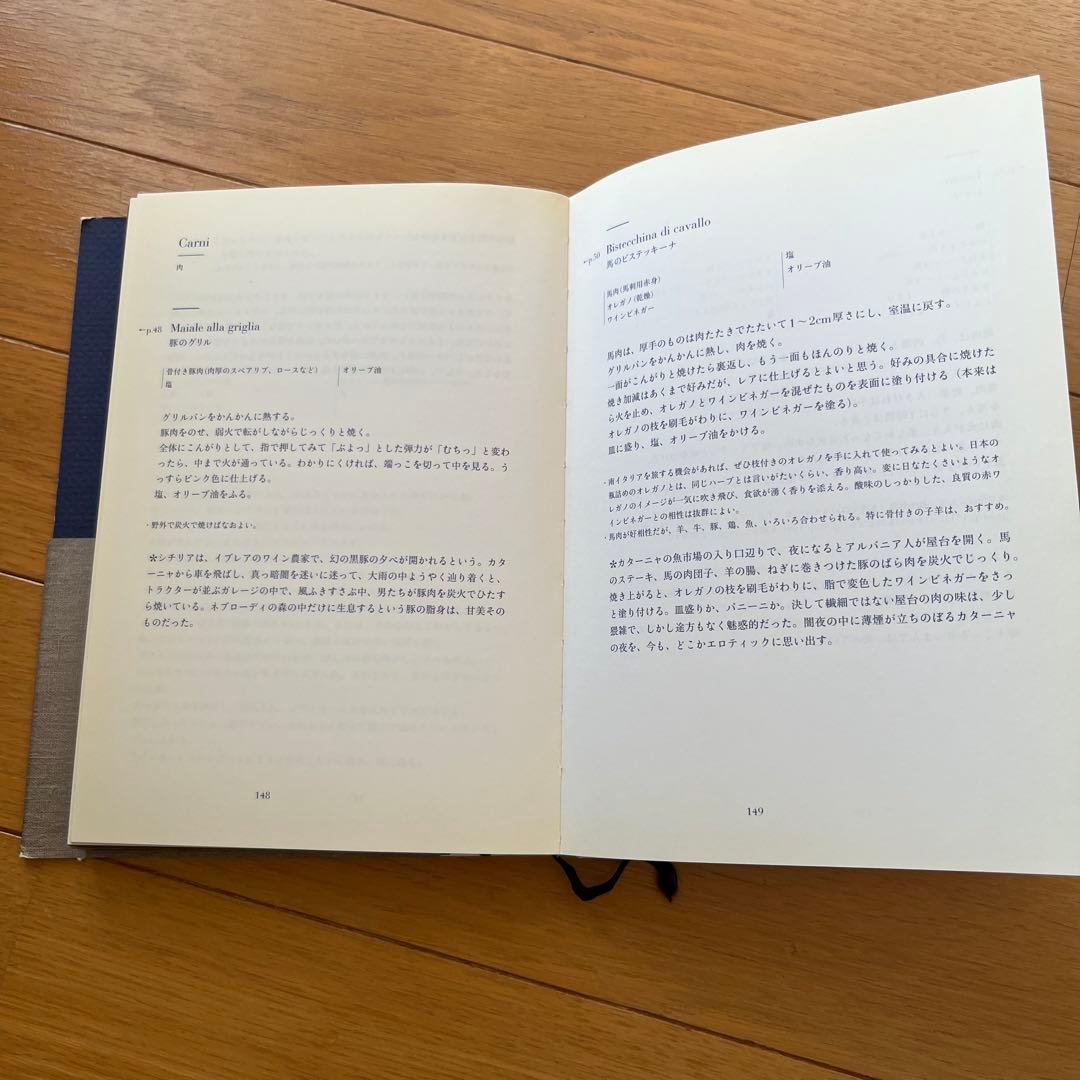 Carni
肉
←p.48 Maiale alla griglia
豚のグリル
骨付き豚肉(肉厚のスペアリブ、ロースなど)
塩
オリーブ油
グリルパンをかんかんに熱する。
豚肉をのせ、弱火で転がしながらじっくりと焼く。
全体にこんがりとして、指で押してみて「ぶよっ」とした弾力が「むちっ」と変わ
ったら、中まで火が通っている。わかりにくければ、端っこを切って中を見る。う
っすらピンク色に仕上げる。
塩、オリーブ油をふる。
・野外で炭火で焼けばなおよい。
✻シチリアは、イブレアのワイン農家で、幻の黒豚の夕べが開かれるという。カタ
ーニャから車を飛ばし、真っ暗闇を迷いに迷って、大雨の中ようやく辿り着くと、
トラクターが並ぶガレージの中で、風ふきすさぶ中、男たちが豚肉を炭火でひたす
ら焼いている。ネブローディの森の中だけに生息するという豚の脂身は、甘美その
ものだった。
148
←p.50 Bistecchina di cavallo
馬のビステッキーナ
馬肉(馬刺用赤身)
オレガノ(乾燥)
ワインビネガー
塩
オリーブ油
馬肉は、厚手のものは肉たたきでたたいて1〜2cm厚さにし、室温に戻す。
グリルパンをかんかんに熱し、肉を焼く。
一面がこんがりと焼けたら裏返し、もう一面もほんのりと焼く。
焼き加減はあくまで好みだが、レアに仕上げるとよいと思う。好みの具合に焼けた
ら火を止め、オレガノとワインビネガーを混ぜたものを表面に塗り付ける（本来は
オレガノの枝を刷毛がわりに、ワインビネガーを塗る）。
皿に盛り、塩、オリーブ油をかける。
・南イタリアを旅する機会があれば、ぜひ枝付きのオレガノを手に入れて使ってみるとよい。日本の
瓶詰めのオレガノとは、同じハーブとは言いがたいくらい、香り高い。変に日なたくさいようなオ
レガノのイメージが一気に吹き飛び、食欲が湧く香りを添える。酸味のしっかりした、良質の赤ワ
インビネガーとの相性は抜群によい。
・馬肉が好相性だが、羊、牛、豚、鶏、魚、いろいろ合わせられる。特に骨付きの子羊は、おすすめ。
✻カターニャの魚市場の入り口辺りで、夜になるとアルバニア人が屋台を開く。馬
のステーキ、馬の肉団子、羊の腸、ねぎに巻きつけた豚のばら肉を炭火でじっくり。
焼き上がると、オレガノの枝を刷毛がわりに、脂で変色したワインビネガーをさっ
と塗り付ける。皿盛りか、パニーニか。決して繊細ではない屋台の肉の味は、少し
猥雑で、しかし途方もなく魅惑的だった。闇夜の中に薄煙が立ちのぼるカターニャ
の夜を、今も、どこかエロティックに思い出す。
149